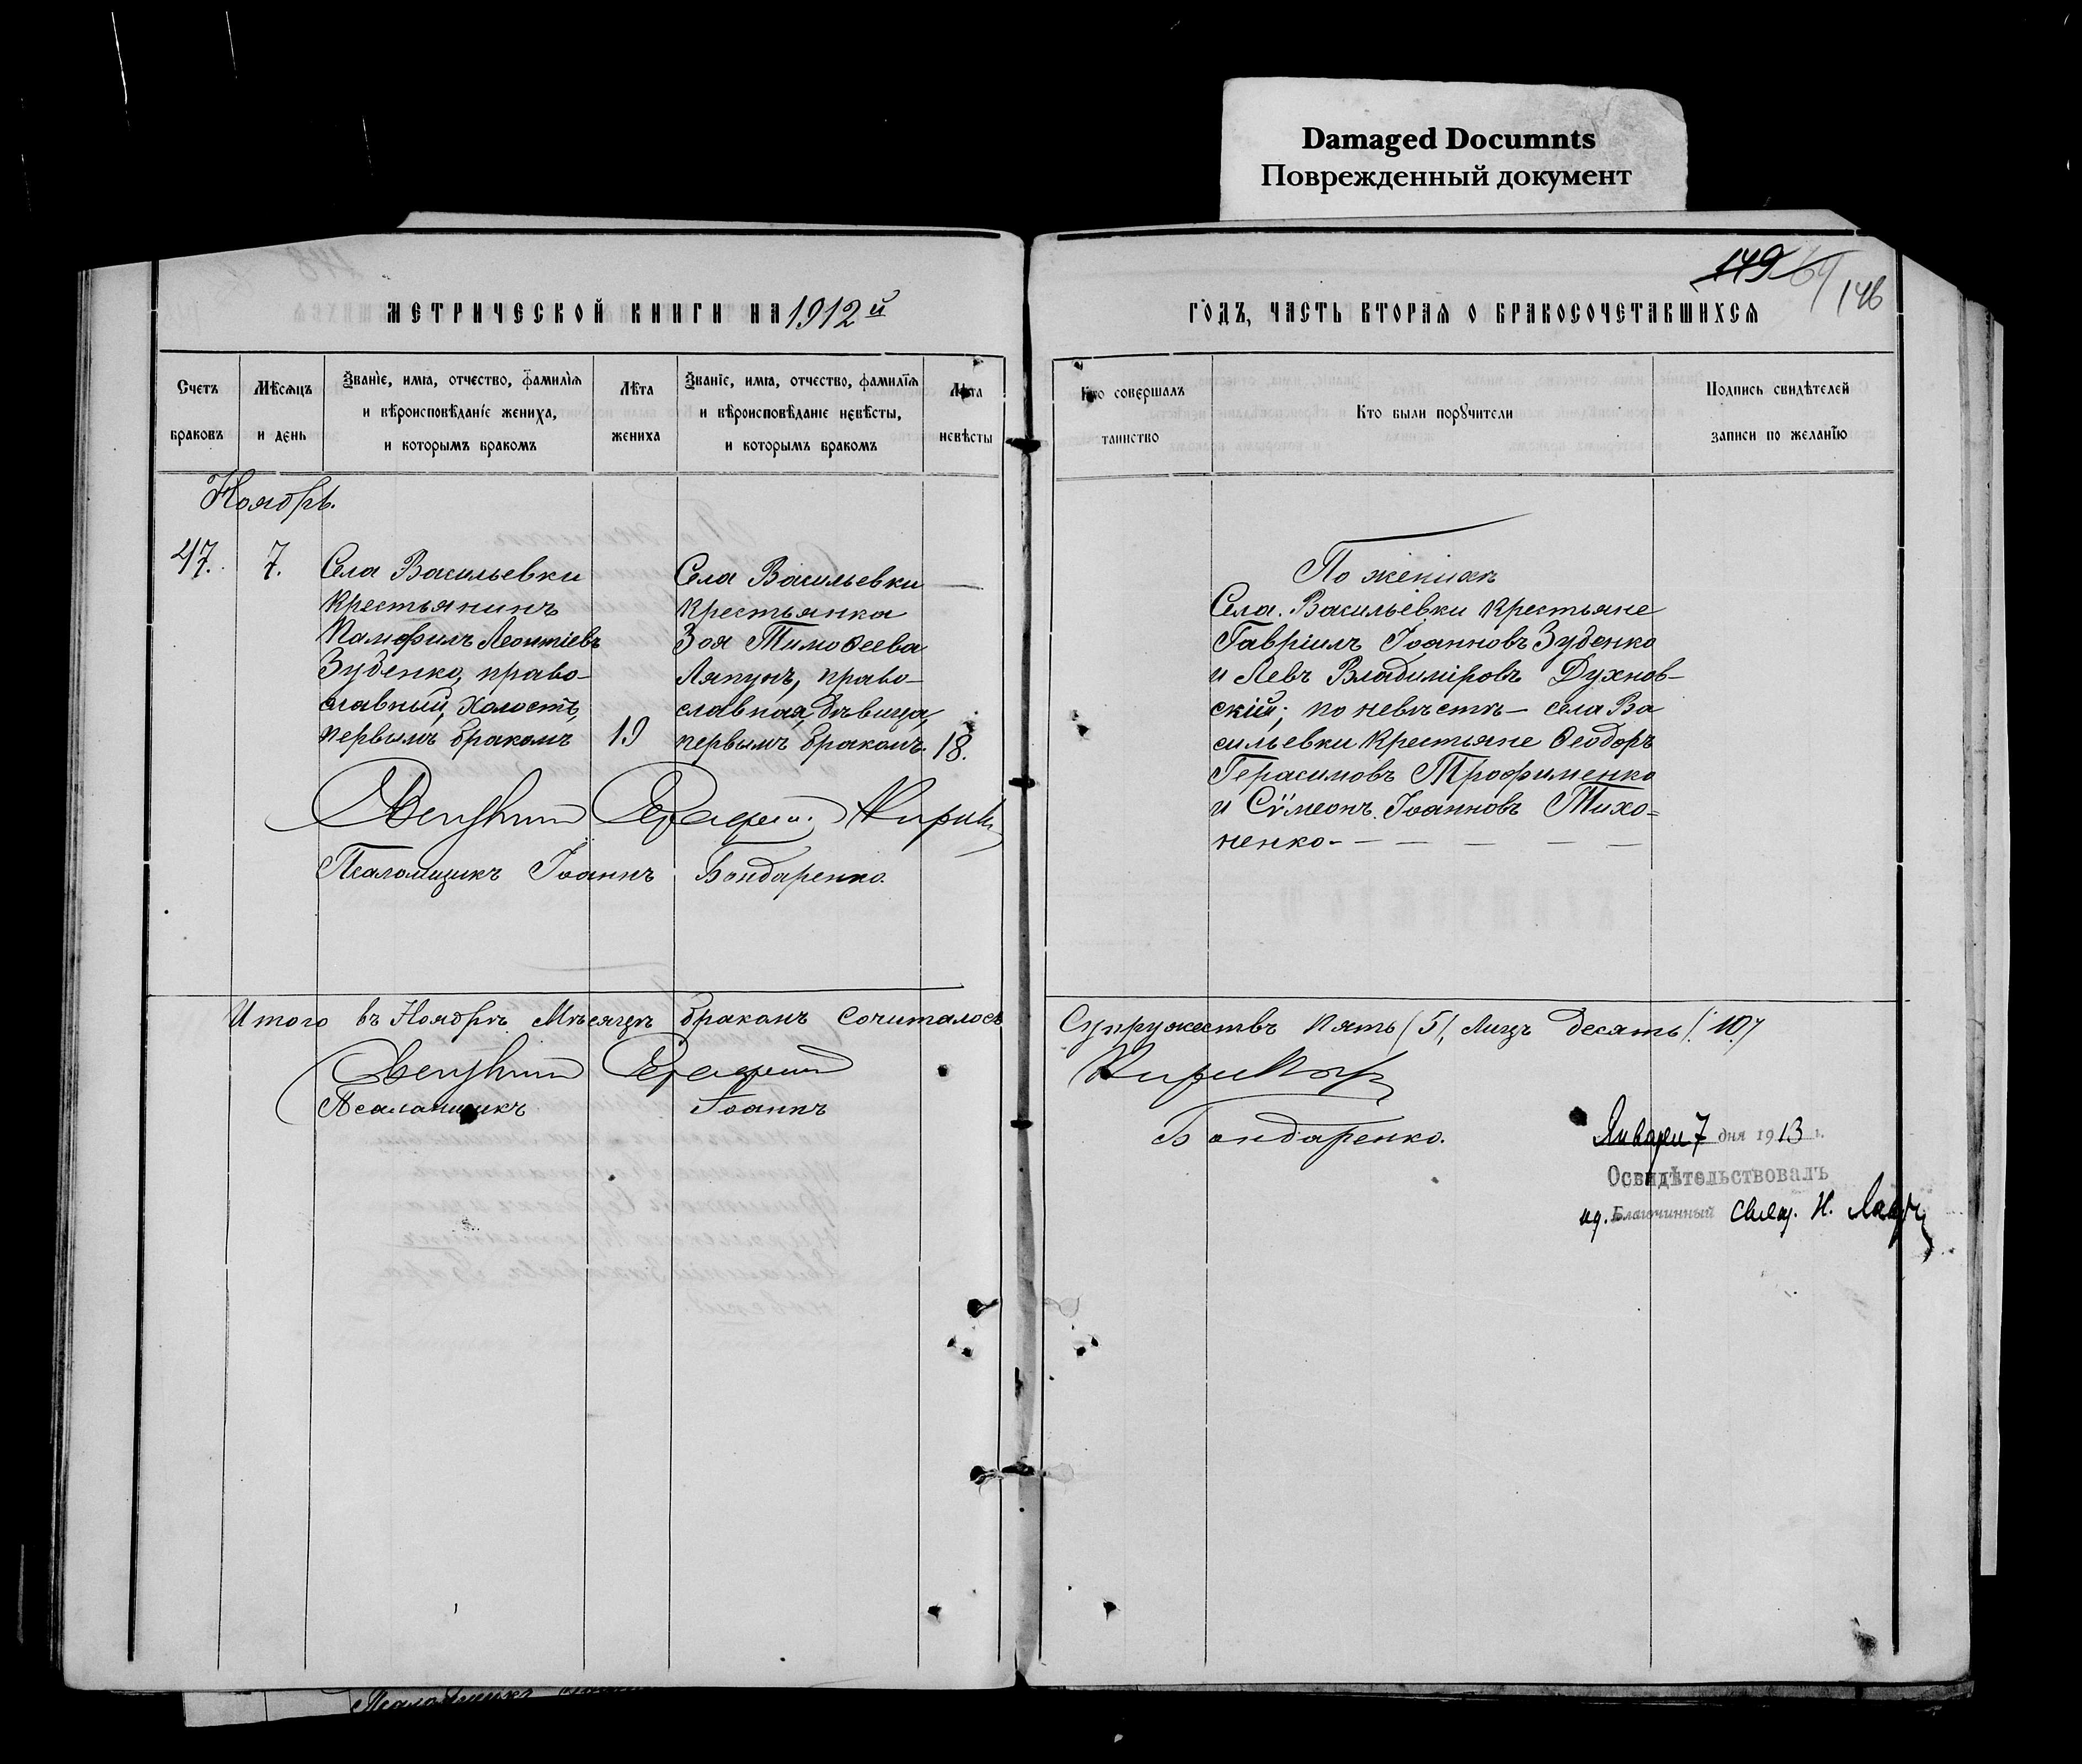 Damaged Documnts
Поврежденный документ
149 64
146
МЕТРИЧЕСКОЙ КНИГИ НА 1912й
ГОДЪ, ЧАСТЬ ВТОРАЯ О БРАКОСОЧЕТАВШИХСЯ
Счетъ
браковъ
Мѣсяцъ
и день
Званіе, имя, отчество, фамилія
и вѣроисповѣданіе жениха,
и которымъ бракомъ
Лѣта
жениха
Званіе, имя, отчество, фамилія
и вѣроисповѣданіе невѣсты,
и которымъ бракомъ
Лѣта
невѣсты
Кто совершалъ
таинство
Кто были поручители
Подпись свидѣтелей
записи по желанію
Ноябрь.
47. 7.
Села Васильевки
крестьянинъ
Памфилъ Леонтіевъ
Зубенко, право-
славный, холостъ,
первымъ бракомъ 19
Села Васильевки
крестьянка
Зоя Тимоѳеева
Ляпунъ, право-
славная, дѣвица,
первымъ бракомъ. 18.
По женихѣ
Села Васильевки крестьяне
Гавріилъ Іоанновъ Зубенко
и Левъ Владиміровъ Духнов-
скій; по невѣстѣ – села Ва
сильевки крестьяне Ѳеодоръ
Герасимовъ Трофименко
и Сѵмеонъ Іоанновъ Тихо=
ненко -
Священник
Псаломщикъ Іоаннъ Бондаренко.
Итого въ Ноябрѣ Мѣсяцѣ бракомъ сочиталось
Супружествъ пять (5), лицъ десять (10)
Священник
Псаломщикъ Іоаннъ
Бондаренко.
Января 7 дня 1913 г.
Освидѣтельствовалъ
ид. Благочинный свящ. Н.